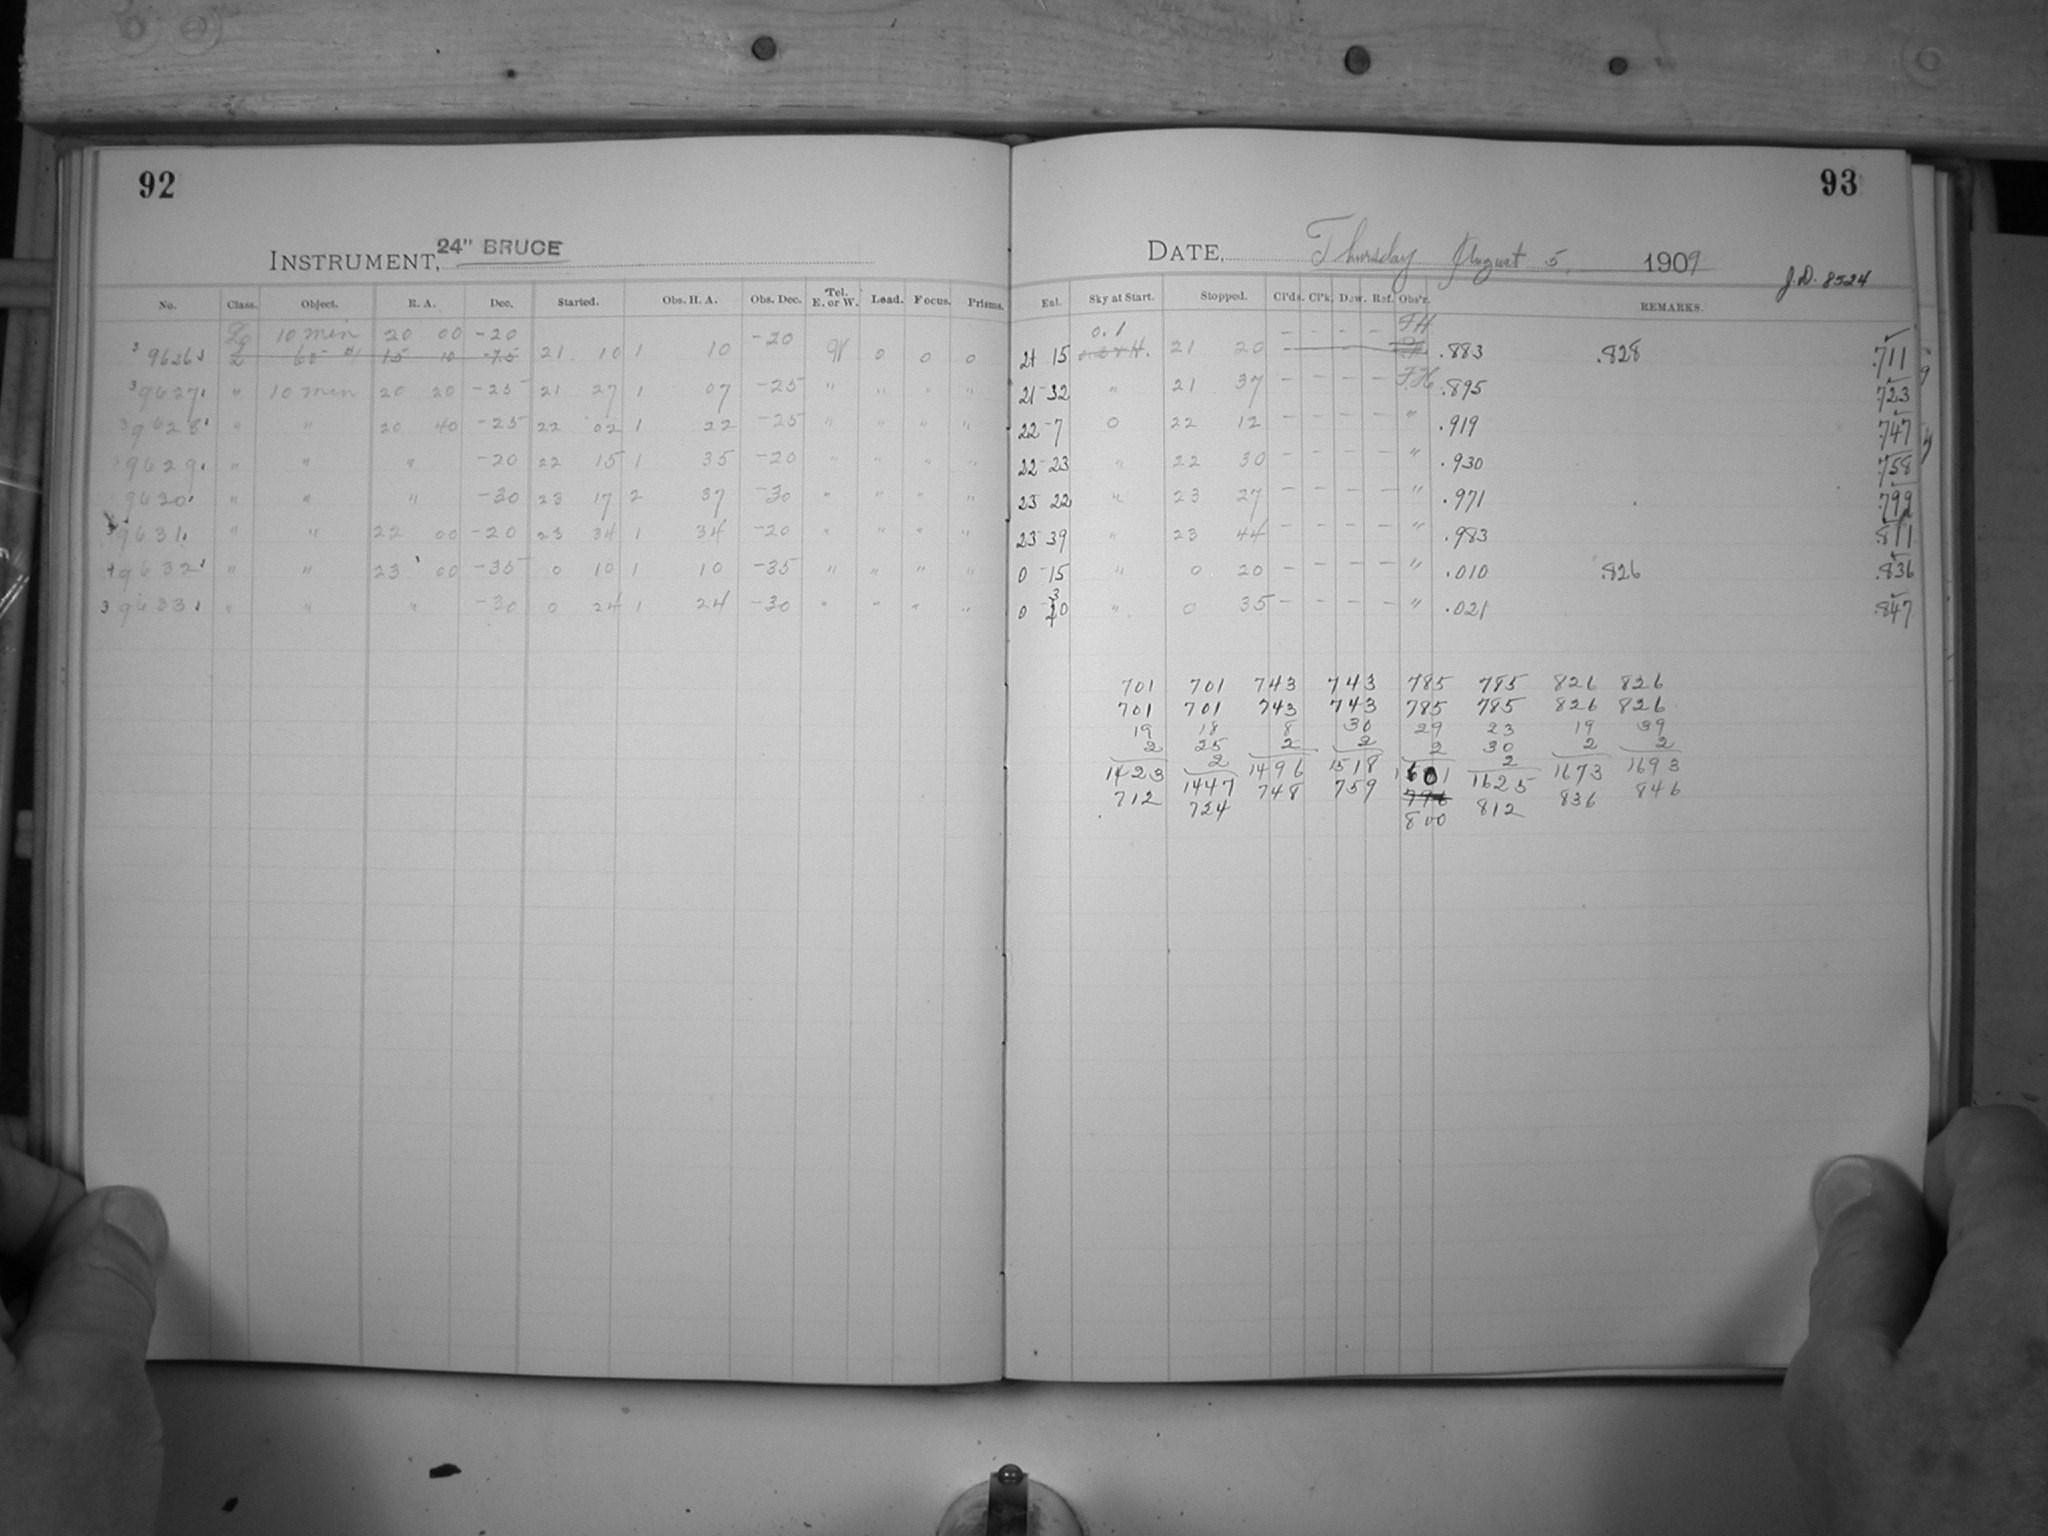 92
93
INSTRUMENT, 24" BRUCE
DATE, Thursday August 5, 1909
J.D. 8524
No. Class. Object. R. A. Dec. Started. Obs. H. A. Obs. Dec. Tel. E. or W. Load. Focus. Prisms. Ent. Sky at Start. Stopped. Cl'ds. Cl'k. Dew. Ref. Obs'r. REMARKS.
10 min 20 00 -20 -20 0.1 - - - - FH
3 9626 60 15 10 -75 21 10 1 10 W 0 0 0 21 15 21 20 .883 .828 .711
3 9627 " 10 min 20 20 -25 21 27 1 07 -25 " " " " 21-32 " 21 37 - - - - F.H. .895 .723
3 9628 " " 20 40 -25 22 02 1 22 -25 " " " " 22-7 0 22 12 - - - - " .919 .747
3 9629 " " " -20 22 15 1 35 -20 " " " " 22-23 " 22 30 - - - - " .930 .758
9630 " " " -30 23 17 2 37 -30 " " " " 23 22 " 23 27 - - - - " .971 .799
9631 " " 22 00 -20 23 34 1 34 -20 " " " " 23-39 " 23 44 - - - - " .983 .811
9632 " " 23 00 -35 0 10 1 10 -35 " " " " 0-15 " 0 20 - - - - " .010 .826 .836
3 9633 " " " -30 0 24 1 24 -30 " " " " 0 30 " 0 35 - - - - " .021 .847
701 701 743 743 785 785 826 826
701 701 743 743 785 785 826 826
19 18 8 30 29 23 19 39
2 25 2 2 2 30 2 2
1423 2 1496 1518 1601 2 1673 1693
712 1447 748 759 1625 836 846
724 800 812